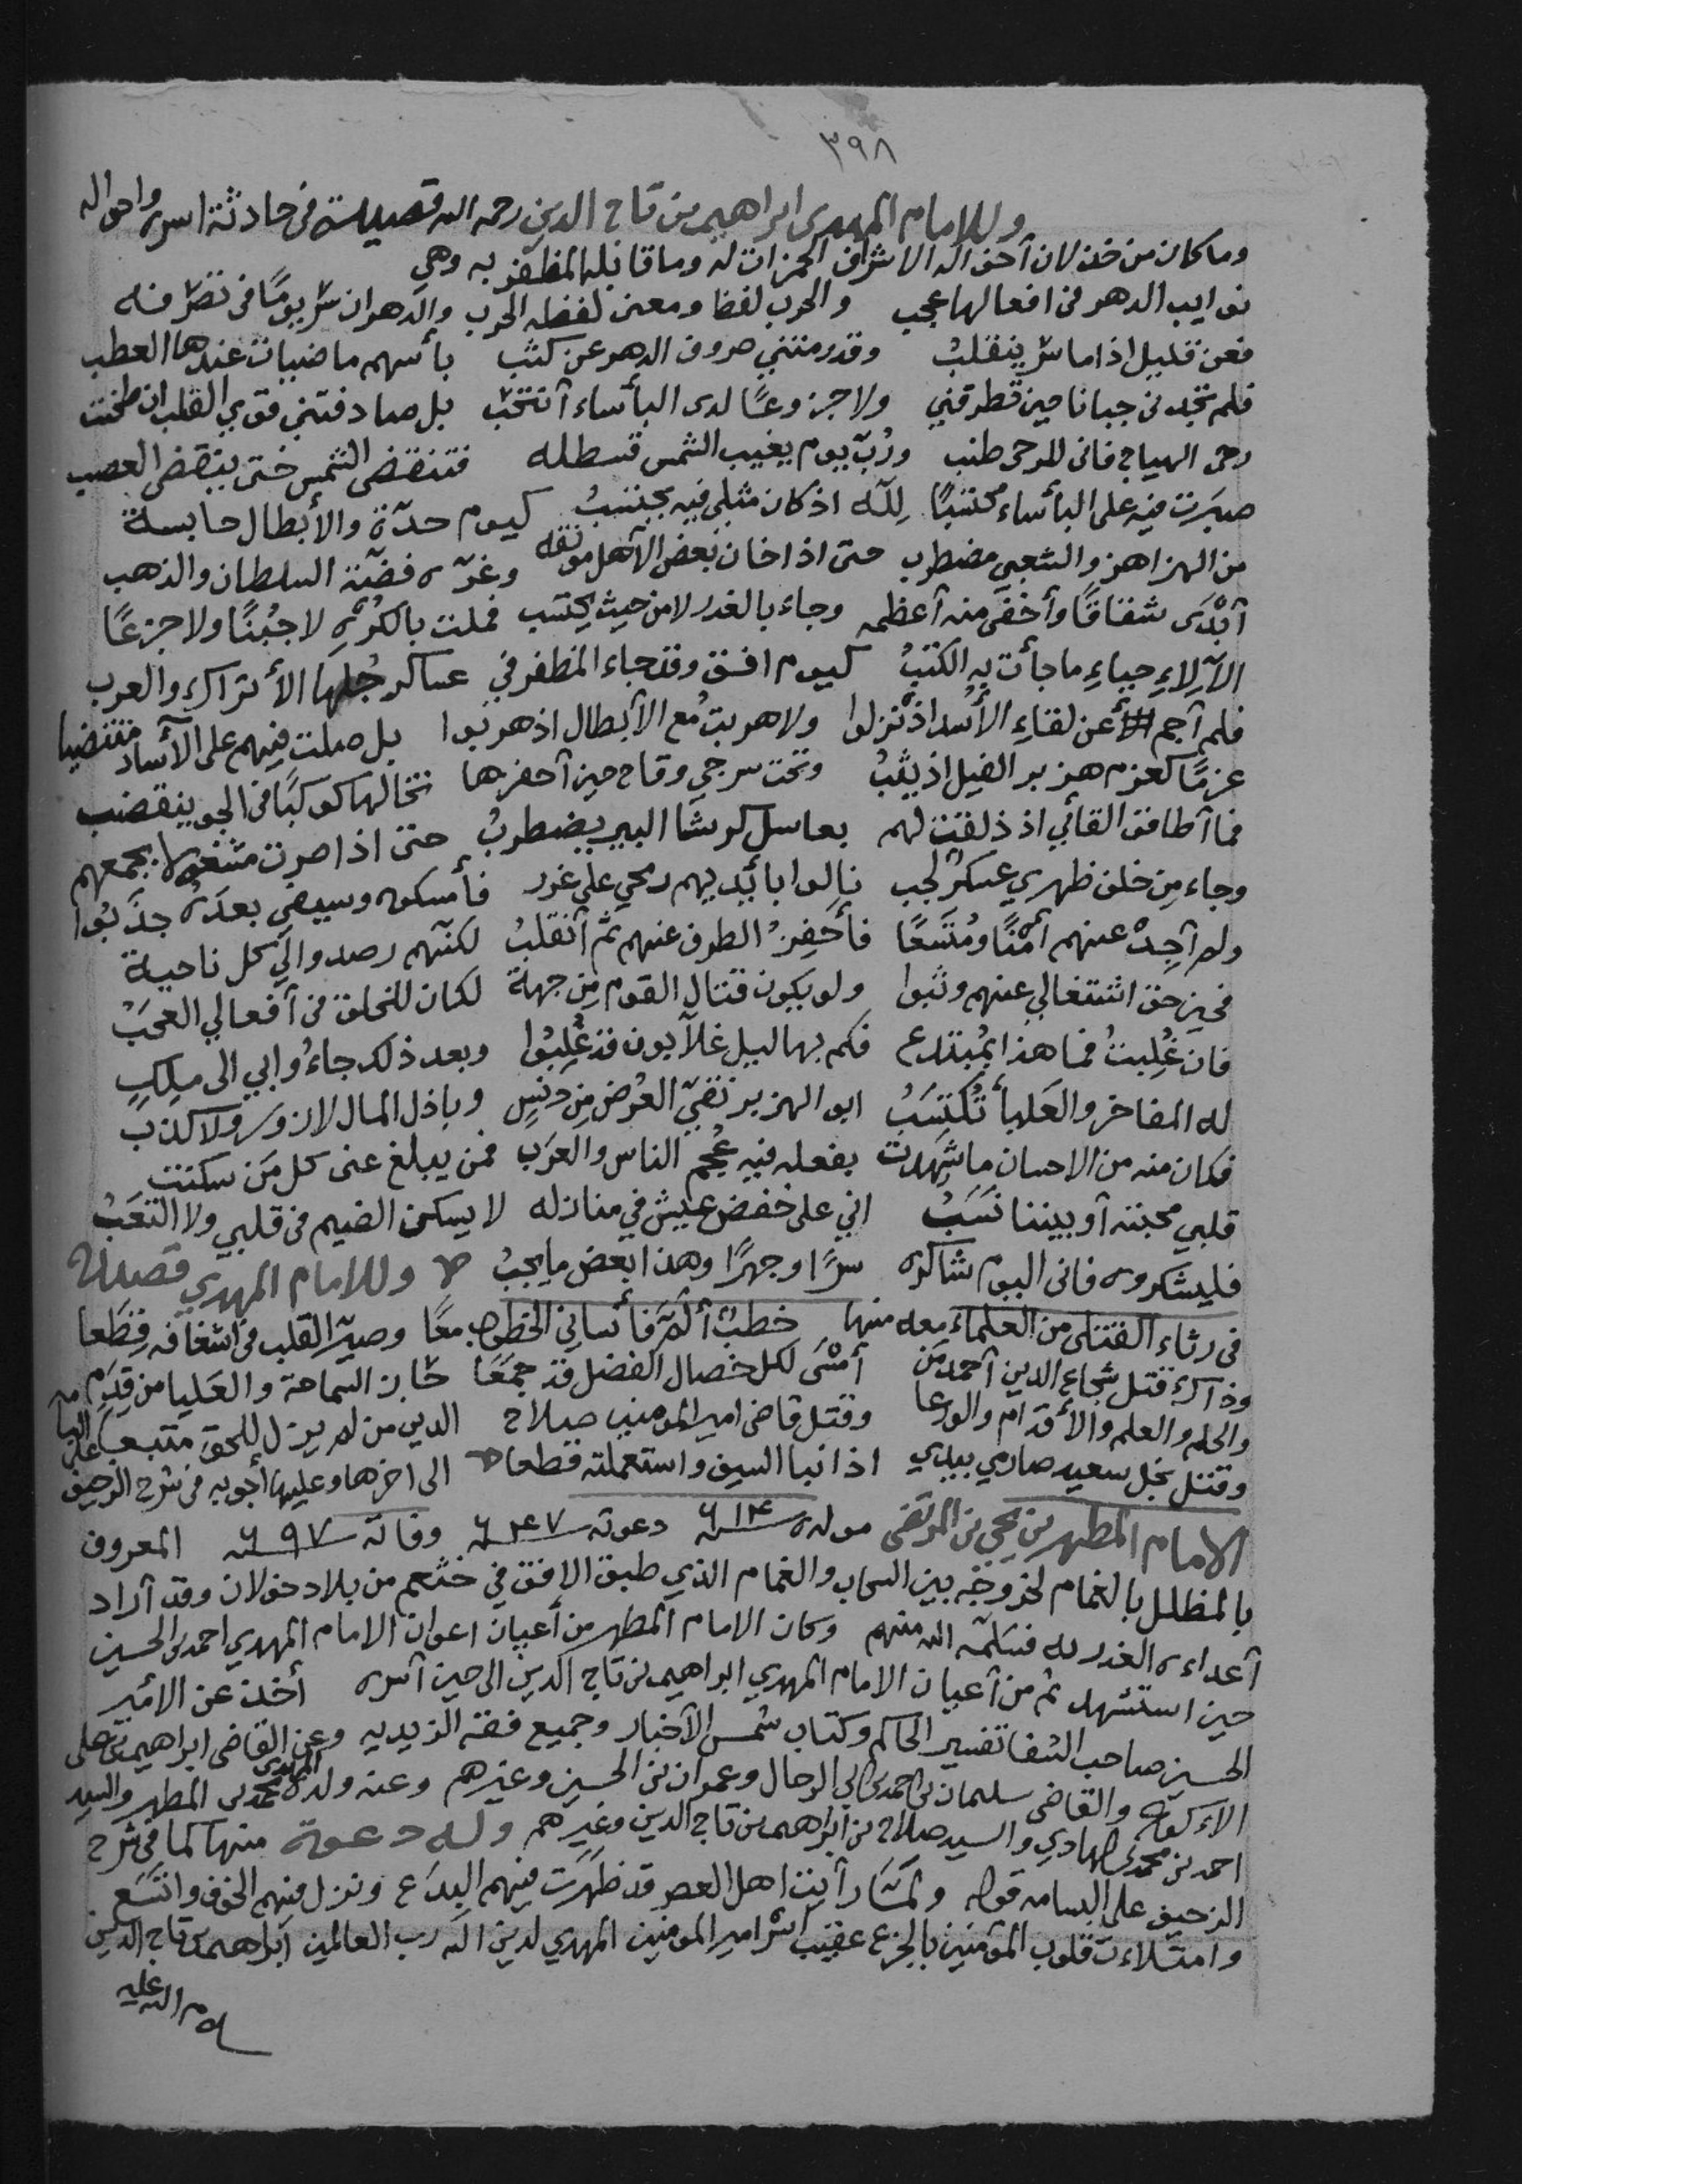 ٣٩٨
وللامام المهدي ابراهيم بن تاج الدين رحمه الله قصيدة في حادثة اسره واحواله
وما كان من خذلان آحن اله الاشراف الحمزات له وما قابله المظفر به وهي
نوايب الدهر في افعالها عجب والحرب لفظا ومعنى لفظه الحرب والدهر ان سر يومًا في تصرفه
فعن قليل اذا ما سر ينقلب وقد رمتني صروف الدهر عن كثب بأسهم ماضيات عندها العطب
فلم تجدني جبانا حين تطرقني ولا جزوعًا لدى البأساء أنتحب بل صادفتني قوي القلب ان طحنت
رحى الهياج فاني للرحى طنب ورُبّ يوم يغيب الشمس قسطله فتنقضي الشمس حتى ينقضي العصب
صبرت فيه على البأساء محتسبًا لِلّه اذ كان مثلي فيه يحتسبُ كيوم حدّة والأبطال حابسة
من الهزاهز والشعبي مضطرب حتى اذا خان بعض الأهل موثقه وغرّه فضّة السلطان والذهب
أبْدَى شقاقًا وأخفى منه أعظمه وجاء بالغدر لا من حيث يحتسب فملت بالكُرْهِ لا جُبْنًا ولا جزعًا
الآ لِلاءِ حباءِ ما جأت به الكتبُ كيوم افق وقد جاء المظفر في عساكر جُلها الأتراك والعرب
فلم أجم عن لقاءِ الأسد اذ نزلوا ولا هربتُ مع الأبطال اذ هربوا بل صلت فيهم على الآساد منتضيا
عزمًا كعزم هزبر الغيل اذ يثبُ وتحت سرجي وقاح حين أحفزها تخالها كوكبًا في الجو ينقضب
فما أطاق القائي اذ ذلفت لهم بعاسل كرشا البير يضطربُ حتى اذا صرت مشغولا بجمعهم
وجاء مِن خلف ظهري عسكر لجب نالوا بأيديهم رمحي على غرر فأمسكوه وسيفي بعدَهُ جذبُوا
ولم أجِدْ عنهم أمْنًا ومُتّسعًا فأحفِزُ الطرف عنهم ثم أنقلبُ لكنّهم رصدوا لي كل ناحية
فحين حق اشتغالي عنهم وثبوا ولو يكون قتال القوم مِن جهة لكان للخلق في أفعالي العجَبُ
فان غُلِبتُ فما هذا بمُبتدع فكم بهاليل غلآبون قد غُلِبُوا وبعد ذلك جاءُوا بي الى ملِكٍ
له المفاخر والعَليأ تُكتَسَبُ ابو الهزبر نقيّ العْرض مِن دنسٍ وباذل المال لا زور ولا كذب
فكان منه من الاحسان ما شهدت بفعله فيه عُجْم الناس والعرَب فمن يبلغ عنى كل مَن سكنت
قلبي محبته أو بيننا نسَبُ اني على خفض عيش في منازله لا يسكن الضيم في قلبي ولا التعَبُ
فليشكروه فاني اليوم شاكره سرًا وجهرًا وهذا بعض ما يجبُ وللامام المهدي قصيدة
في رثاء القتلى من العلماء معه منها خطبٌ ألمّ فأنساني الخطوب معًا وصيّر القلب في أشغافه قِطَعا
وذاك قتل شجاع الدين أحمد مَن أمسَى لكل خصال الفضل قد جمَعا حاز السماحة والعَليا من قِدَم
والحلم والعلم والأقدام والورعا وقتل قاضي امير المومنين صلاح الدين من لم يزل للحق متبعا
وقتل نجل سعيد صارمي بيدي اذا نبا السيف واستعملته قطعا الى اخرها وعليها أجوبه في شرح الزحيف
الامام المطهر بن يحي بن المرتضى مولده ٦١٤ دعوته ٦٤٧ وفاته ٦٩٧ المعروف
بالمظلل بالغمام لخروجه بين السحاب والغمام الذي طبق الافق في خثعم من بلاد خولان وقد أراد
أعداءه الغدر به فسلمه الله منهم وكان الامام المطهر من أعيان اعوان الامام المهدي احمد بن الحسين
حين استشهد ثم من أعيان الامام المهدي ابراهيم بن تاج الدين الى حين أسره أخذ عن الأمير
الحسين صاحب الشفا تفسير الحاكم وكتاب شمس الآخبار وجميع فقه الزيديه وعن القاضي ابراهيم بن علي
الأكوع والقاضي سليمان بن احمد بن ابي الرجال وعمران بن الحسين وغيرهم وعنه ولده المهدي محمد بن المطهر والسيد
احمد بن محمد بن الهادي والسيد صلاح بن ابراهيم بن تاج الدين وغيرهم وله دعوة منها كما في شرح
الزحيف على البسامه قوله ولمّا رأيت اهل العصر قد ظهَرت فيهم البِدَع ونزل فيهم الخوف واتسَع
وامتلاءت قلوب المؤمنين بالجزع عقيب اسْر امير المومنين المهدي لدين اله رب العالمين ابراهيم بن تاج الدين
سلام الله عليه